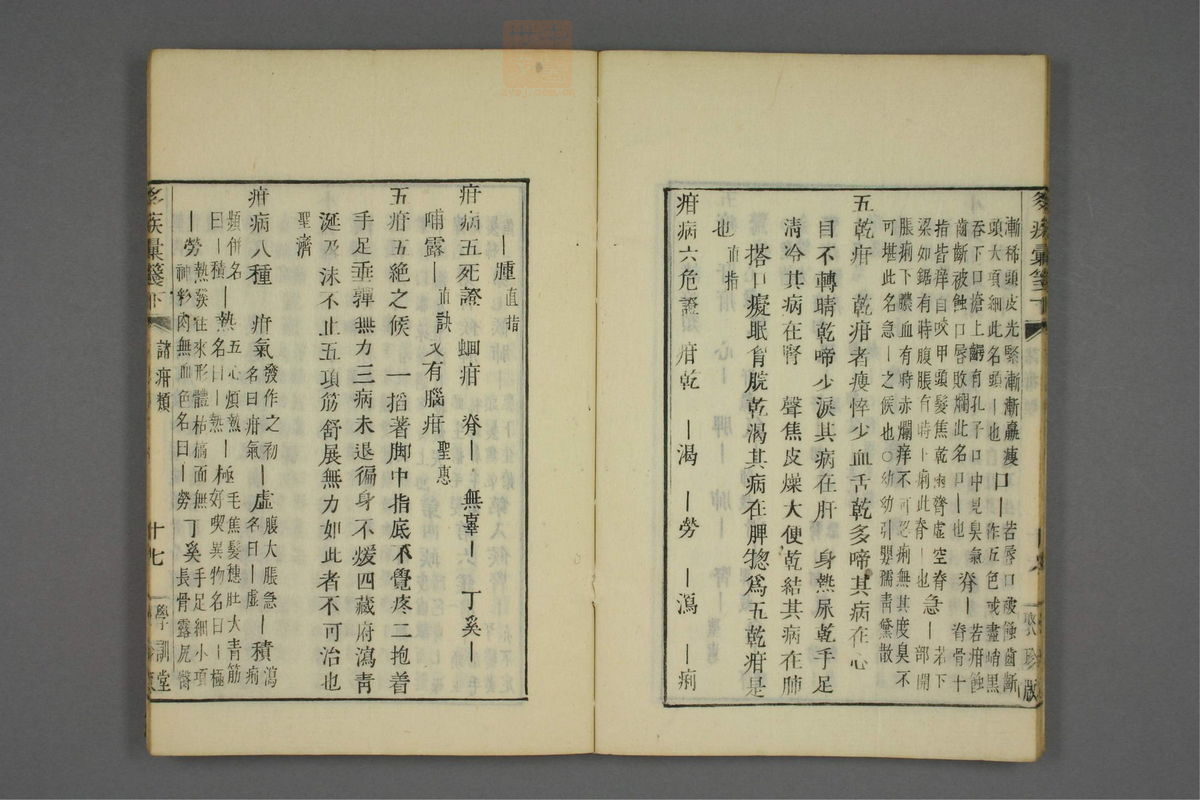 漸稀頭皮光緊漸漸羸瘦口｜若唇口被蝕齒斷
頭大項細此名頭｜也作五色或盡峭黑
吞下口瘡上齶有孔子口中見臭氣脊｜若疳蝕
齒斷被蝕口唇敗爛此名口｜也脊骨十
指皆痒自咬甲頭髮焦乾兩脅虛空脊｜若下
梁如鋸有時腹脹有時上痢此脊｜也急｜部開
脹痢下膿血有時赤爛痒不可忍痢無其度臭不
可堪此名急｜之候也○幼幼引嬰孺青黛散
五乾疳 乾疳者瘦悴少血舌乾多啼其病在心
目不轉睛乾啼少淚其病在肝 身熱尿乾手足
清冷其病在腎 聲焦皮燥大便乾結其病在肺
搭口癡眠胷脘乾渴其病在脾惣爲五乾疳是
也直指
疳病六危證 疳乾 ｜渴 ｜勞 ｜瀉 ｜痢
｜腫直指
疳病五死證 蛔疳 脊｜ 無辜｜ 丁奚｜
哺露｜直訣又有腦疳聖惠
五疳五絕之候 一搯著脚中指底不覺疼二抱着
手足垂嚲無力三病未退徧身不煖四藏府瀉靑
涎及沫不止五項筋舒展無力如此者不可治也
聖濟
疳病八種 疳氣發作之初｜虛腹大脹急｜積瀉
名曰疳氣名曰｜虛病
類併名｜熱五心煩熱｜極毛焦髮穗肚大青筋
曰｜積名曰｜熱好喫異物名曰｜極
｜勞熱發往來形體枯槁面無丁奚手足細小項
神彩肉無血色名曰｜勞長骨露尻臀
下 諸疳類 十七 學訓堂